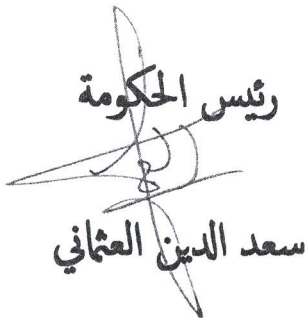 رئيس الحكومة
سعد الدين العثماني